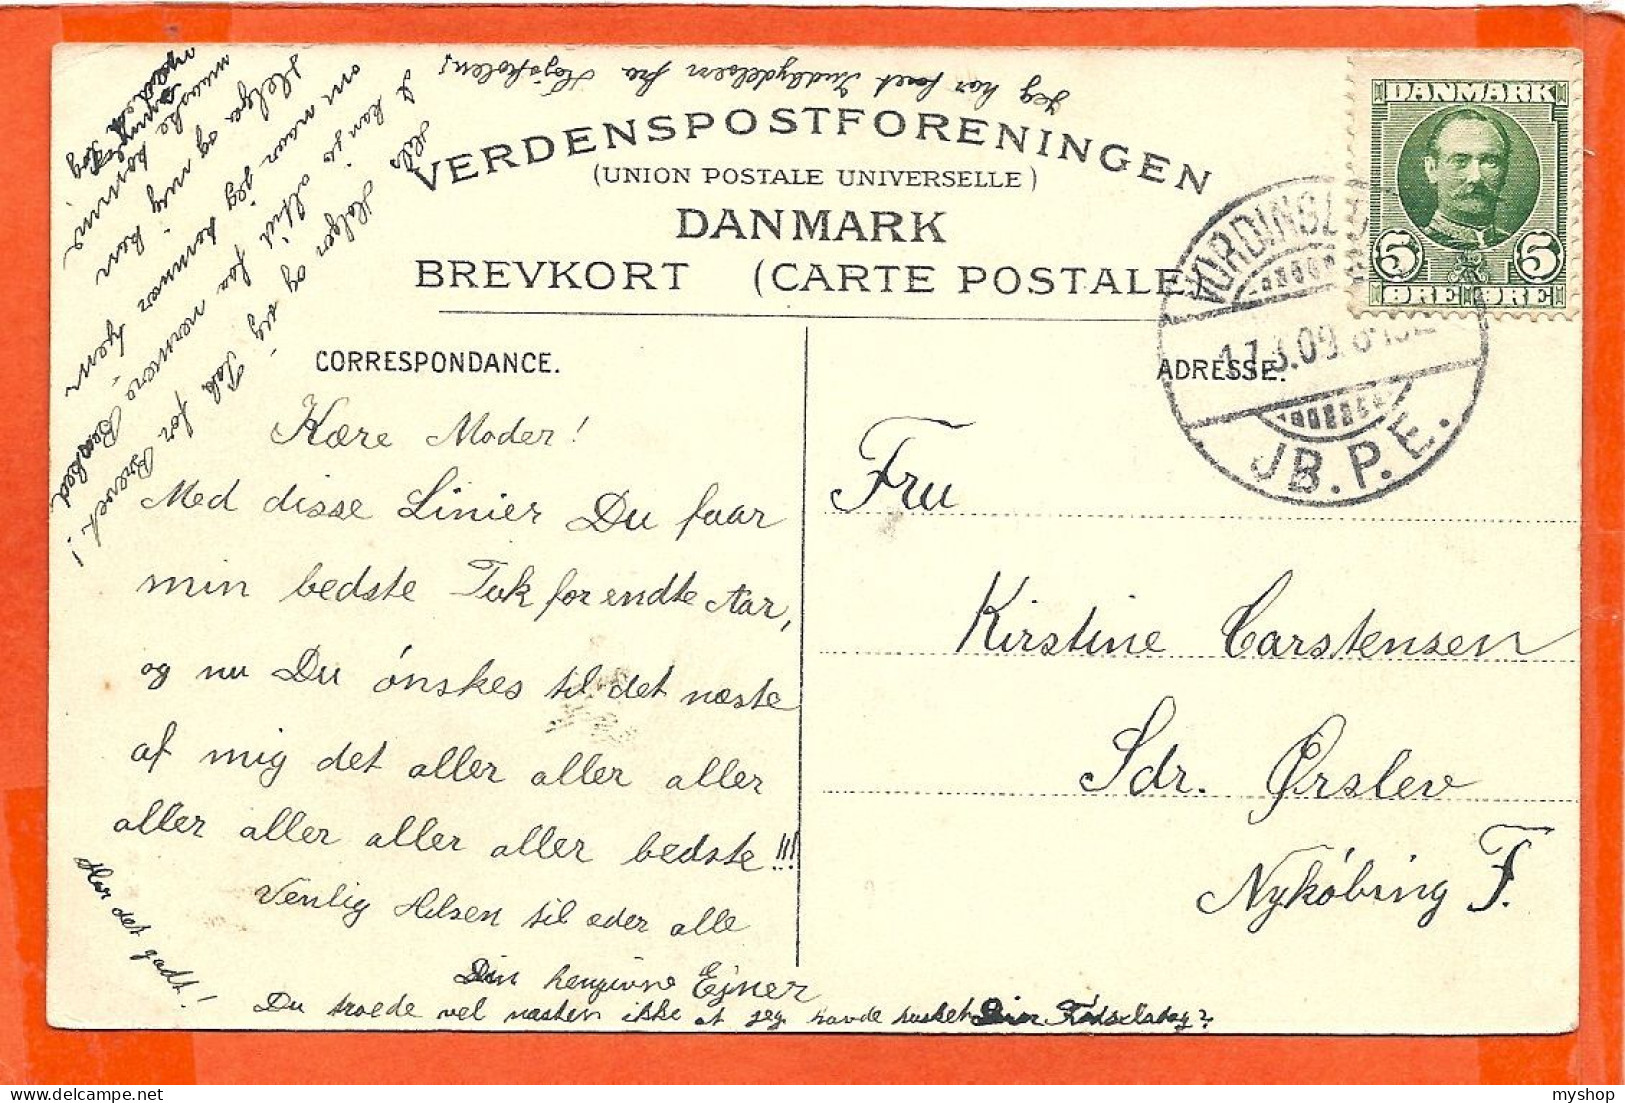 Jeg har faaet Indbydelsen fra Højskolen!
VERDENSPOSTFORENINGEN
(UNION POSTALE UNIVERSELLE)
DANMARK
BREVKORT (CARTE POSTALE)
DANMARK
5 5
ØRE ØRE
VORDINGBORG
17.3.09.
JB.P.E.
CORRESPONDANCE.
ADRESSE.
Kære Moder!
Med disse Linier Du faar
min bedste Tak for endte Aar,
og nu Du ónskes til det næste
af mig det aller aller aller
aller aller aller aller bedste!!!
Venlig Hilsen til eder alle
Din hengivne Ejner
Du troede vel næsten ikke at jeg havde husket Din Födselsdag?
Har det godt!
Fru
Kirstine Carstensen
Sdr. Ørslev
Nykóbing F.
Hils Holger og sig Tak for Brevet!
I kan jo altid faa nærmere Besked
om naar jeg kommer hjem
Helga og mig kan
maaske komme
med
Tog
myshop